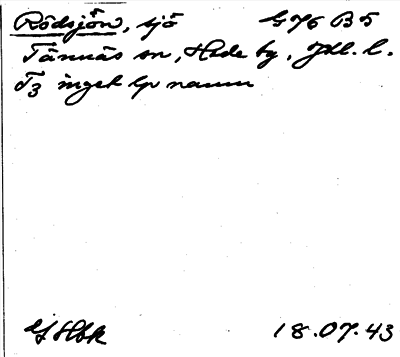 Rödsjön, sjö G76 B5
Tännäs sn, Hede tg, Jtl. l.
T3 inget lp namn
18.07.43